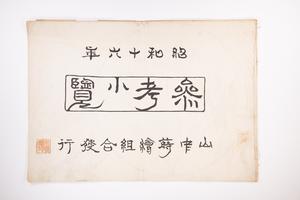 昭和十六年
參考小覽
山中蒔繪組合發行